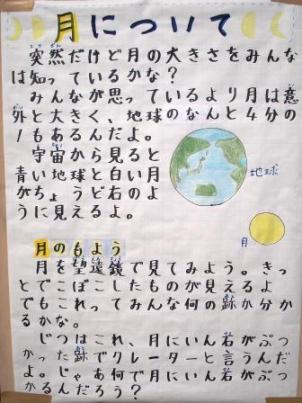 月について
突然だけど月の大きさをみんな
は知っているかな?
みんなが思っているより月は意
外と大きく、地球のなんと4分の
1もあるんだよ。
宇宙から見ると
青い地球と白い月
がちょうど右のよ
うに見えるよ。
地球
月
月のもよう
月を望遠鏡で見てみよう。きっ
とでこぼこしたものが見えるよ
でもこれってみんな何の跡か分か
るかな。
じつはこれ、月にいん石がぶつ
かった跡でクレーターと言うんだ
よ。じゃあ何で月にいん石がぶつ
かるんだろう?